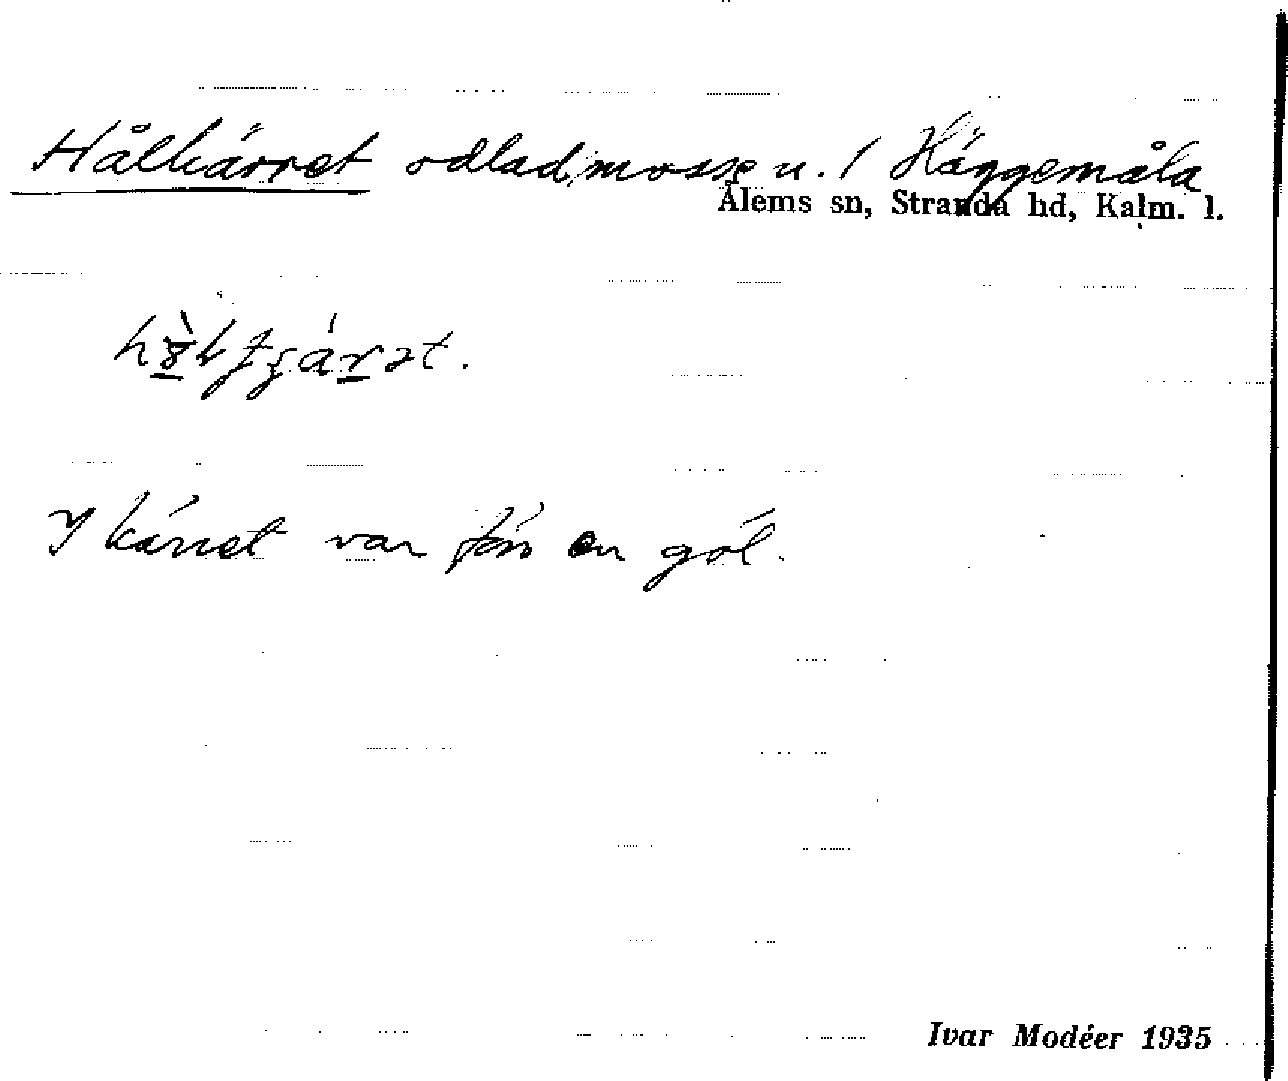 Hålkärret odlad mosse u. / Häggemåla
Ålems sn, Stranda hd, Kalm. l.
I kärret var förr en göl.
Ivar Modéer 1935